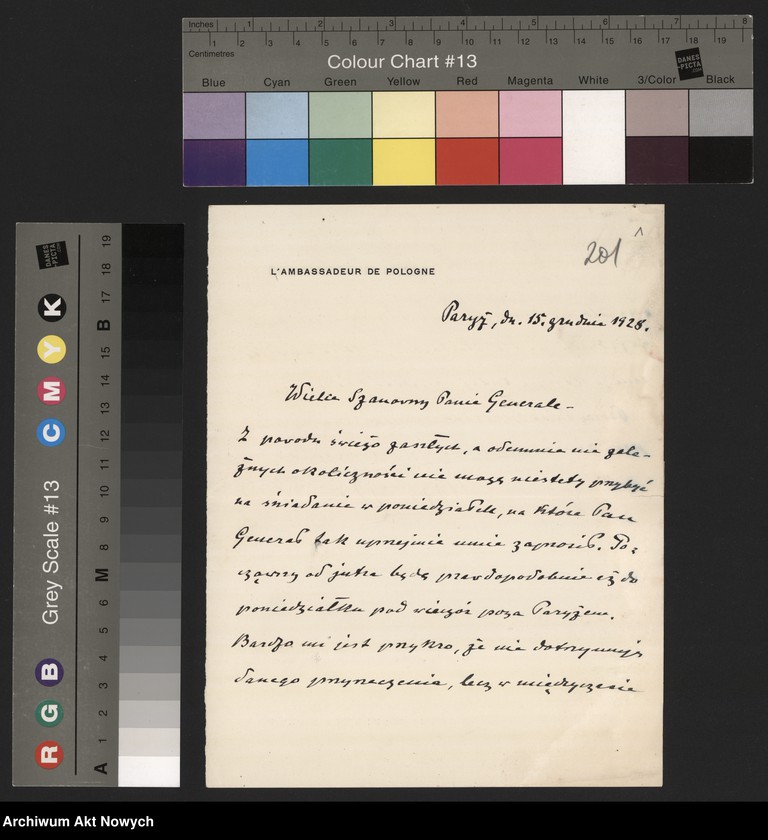 Inches 1 2 3 4 5 6 7 8
Centimetres 1 2 3 4 5 6 7 8 9 10 11 12 13 14 15 16 17 18 19
Colour Chart #13
DANES
-PICTA
.COM
Blue Cyan Green Yellow Red Magenta White 3/Color Black
DANES
-PICTA
.COM
Grey Scale #13
R G B C M Y K
A 1 2 3 4 5 6 M 8 9 10 11 12 13 14 15 B 17 18 19
201
L'AMBASSADEUR DE POLOGNE
Paryż, dn. 15. grudnia 1928.
Wielce Szanowny Panie Generale –
Z powodu świeżo zaszłych, a odemnie nie zale-
żnych okoliczności nie mogę niestety przybyć
na śniadanie w poniedziałek, na które Pan
Generał tak uprzejmie mnie zaprosił. Po-
cząwszy od jutra będę prawdopodobnie aż do
poniedziałku pod wieczór poza Paryżem.
Bardzo mi jest przykro, że nie dotrzymuję
danego przyrzeczenia, lecz w międzyczasie
Archiwum Akt Nowych